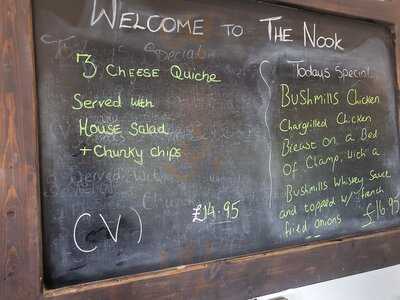 Welcome to The Nook
3 Cheese Quiche
Served with
House Salad
+ Chunky chips
(V)
£14.95
Todays Special
Bushmills Chicken
Chargrilled Chicken
Breast on a Bed
of Clamp, with a
Bushmills Whiskey Sauce
and topped w/ french
fried onions £16.95